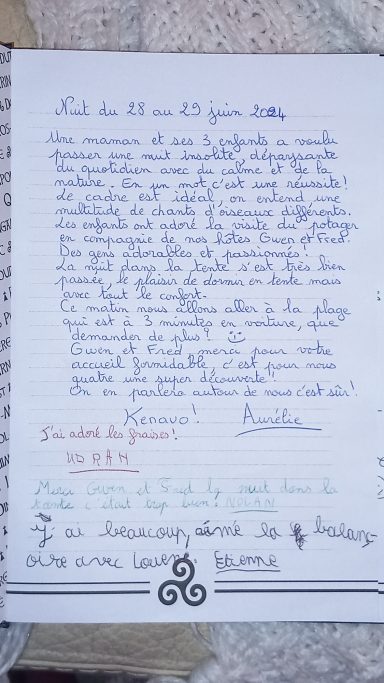 Nuit du 28 au 29 juin 2024
Une maman et ses 3 enfants a voulu
passer une nuit insolite, dépaysante
du quotidien avec du calme et de la
nature. En un mot c'est une réussite!
Le cadre est idéal, on entend une
multitude de chants d'oiseaux différents.
Les enfants ont adoré la visite du potager
en compagnie de nos hôtes Gwen et Fred.
Des gens adorables et passionnés!
La nuit dans la tente s'est très bien
passée, le plaisir de dormir en tente mais
avec tout le confort.
Ce matin nous allons aller à la plage
qui est à 3 minutes en voiture, que
demander de plus? ☺
Gwen et Fred merci pour votre
accueil formidable, c'est pour nous
quatre une super découverte!
On en parlera autour de nous c'est sûr!
Kenavo! Aurélie
J'ai adoré les fraises!
Merci Gwen et Fred la nuit dans la
tente c'était trop bien! NOLAN
j'ai beaucoup aimé la balanç-
oire avec Louen. Etienne